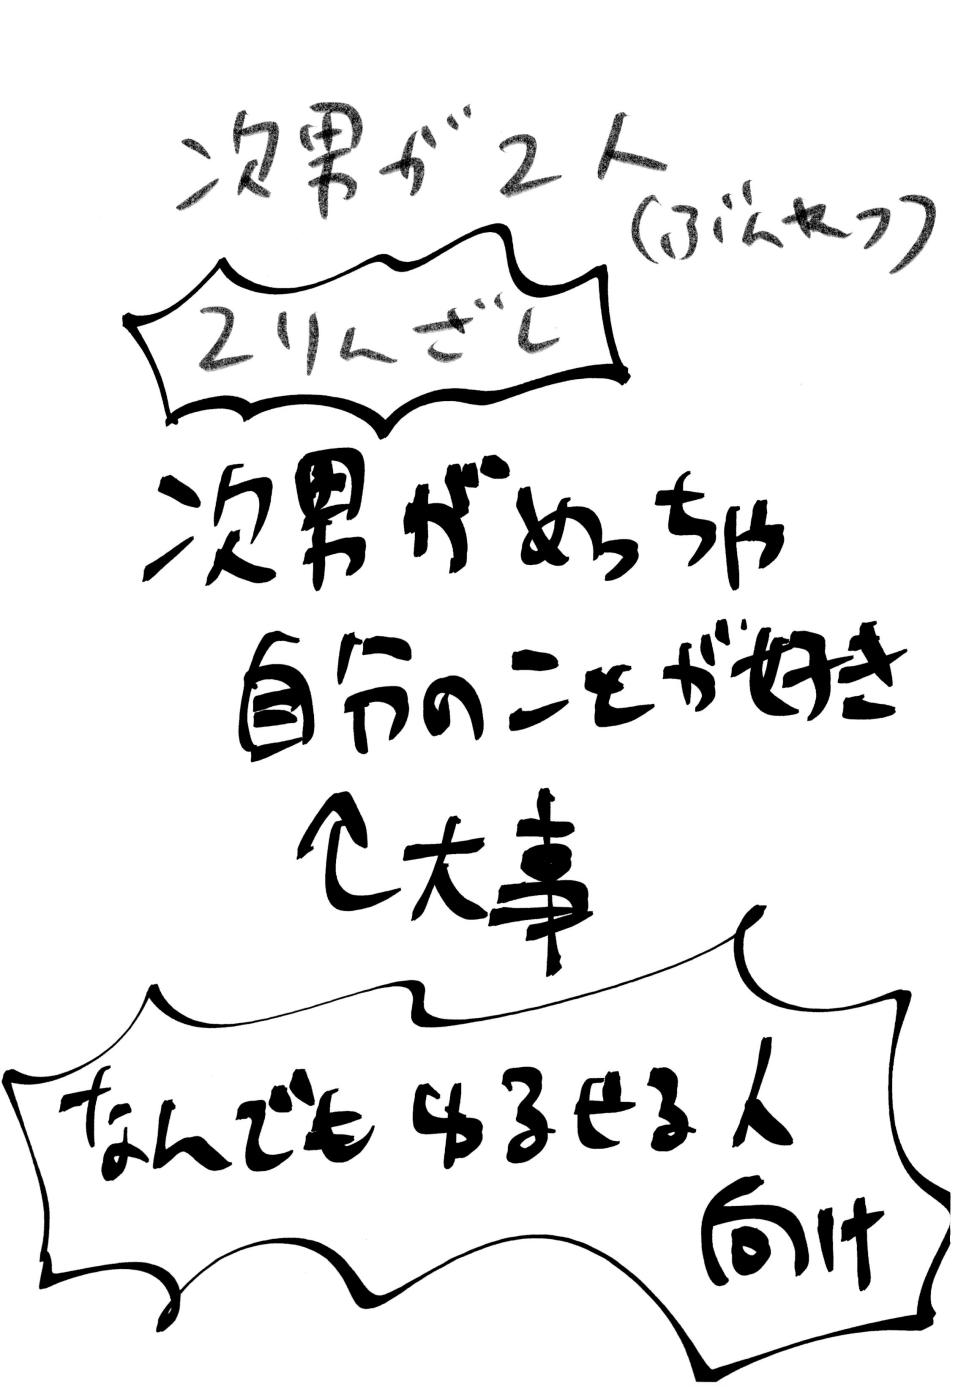 次男が2人
(ぶんやつ)
2りんざし
次男がめっちゃ
自分のことが好き
↑大事
なんでもゆるせる人
向け